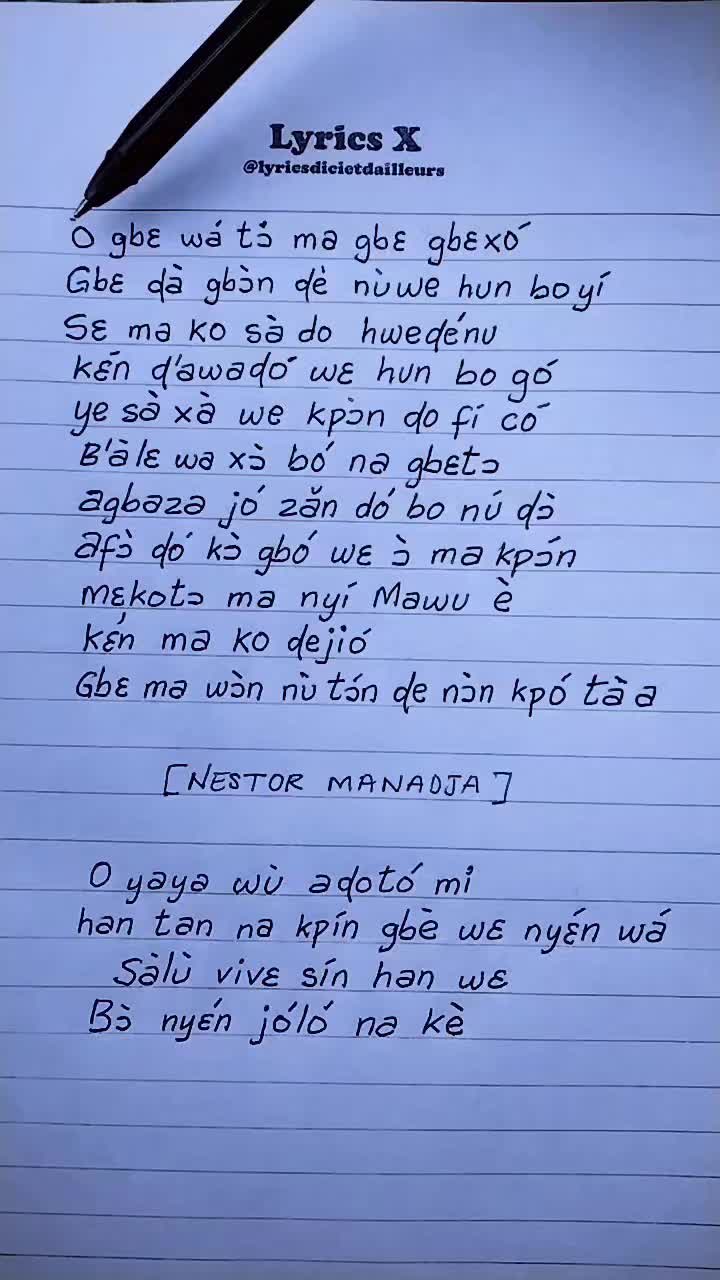 Lyrics X
@lyricsdicietdailleurs
Ò gbɛ wá tɔ́ ma gbɛ gbɛxó
Gbɛ ɖà gbɔ̀n ɖè nùwe hun bo yí
Sɛ ma ko sà do hweɖénu
kɛ́n ɖ'awaɖó wɛ hun bo gó
ye sà xà we kpɔ̀n do fí có
B'àlɛ wa xɔ̀ bó na gbɛtɔ
agbaza jó zǎn dó bo nú ɖɔ̀
afɔ̀ ɖó kɔ̀ gbó wɛ ɔ̀ ma kpɔ́n
mɛkotɔ ma nyí Mawu è
kɛ́n ma ko ɖejió
Gbɛ ma wɔ̀n nù tɔ́n ɖe nɔ̀n kpó tàa
[NESTOR MANADJA]
O yaya wù aɖotó mi
han tan na kpín gbè wɛ nyɛ́n wá
Sàlù vivɛ sín han wɛ
Bɔ̀ nyɛ́n jóló na kè